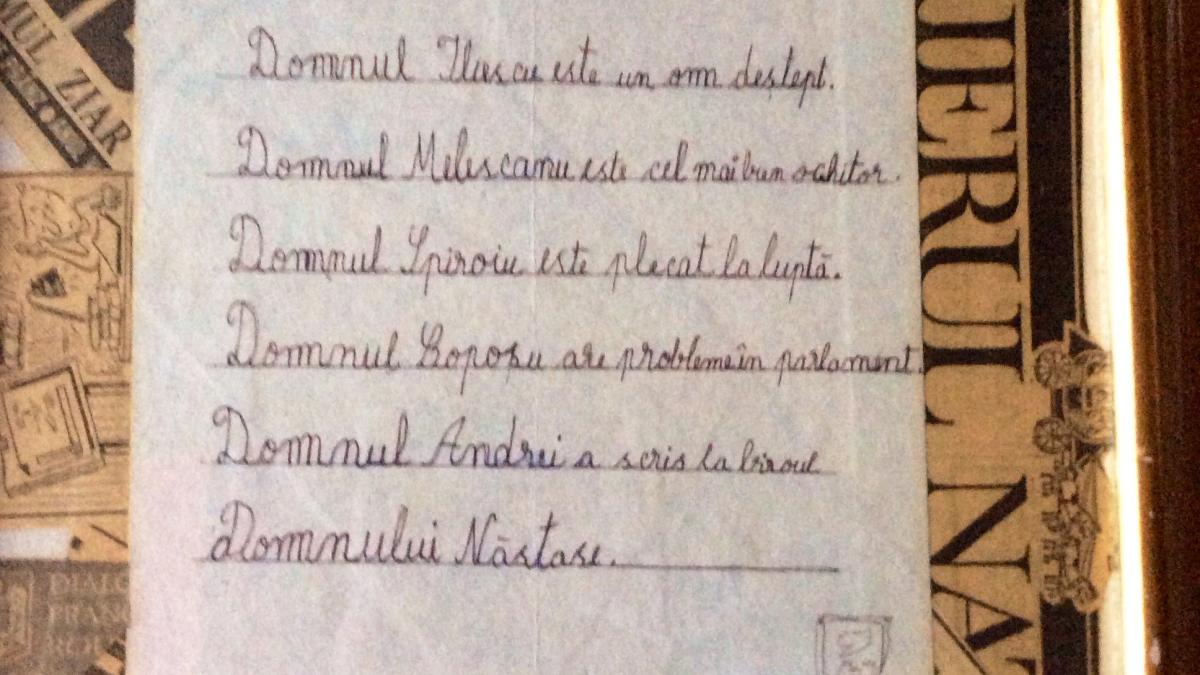 MUL ZIAR
Domnul Iliescu este un om deștept.
Domnul Melescanu este cel mai bun ochitor.
Domnul Spiroiu este plecat la luptă.
Domnul Coposu are probleme în parlament.
Domnul Andrei a scris la biroul
Domnului Năstase.
IERUL NAT
DIALO
FRASO
RO